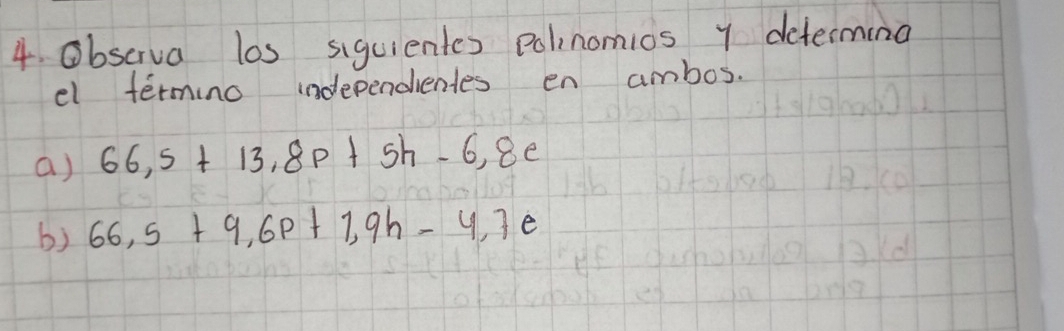 4. Observa los siguientes polinomios y determina
el término independientes en ambos.
a) 66,5 + 13,8p + 5h - 6,8e
b) 66,5 + 9,6p + 1,9h - 4,7e